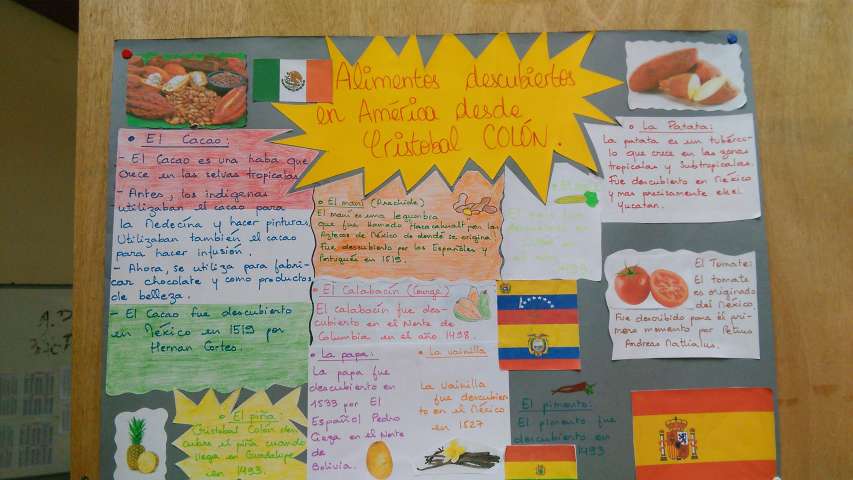 Alimentos descubiertos
en América desde
Cristobal COLÓN.
• El Cacao:
- El Cacao es una haba que
crece en las selvas tropicales
- Antes, los indigenas
utilizaban el cacao para
la Medecina y hacer pinturas
Utilizaban también el cacao
para hacer infusión.
- Ahora, se utiliza para fabri-
car chocolate y como productos
de belleza.
- El Cacao fue descubierto
en México en 1519 por
Hernan Cortes.
• El piña:
Cristobal Colón des
cubre el piña cuando
llega en Guadalupe
en 1493.
• El maní (Arachide)
El maní es una legumbra
que fue llamado tlacacahualt por los
Aztecas de México de donde se origina.
Fue descubierto por los Españoles y
Portugués en 1519.
• El Calabacín (Courge)
El calabacín fue des-
cubierto en el Norte de
Columbia en el año 1498.
• La papa:
La papa fue
descubierto en
1533 por El
Español Pedro
Cieza en el Norte
de
Bolivia.
• La vainilla
La vainilla
fue descubier-
to en el México
en 1527
• La Patata:
La patata es un tubércu-
lo que crece en las zonas
tropicales y Subtropicales.
Fue descubierto en México
y mas precisamente en el
Yucatan.
El Tomate:
El tomate
es originado
del México.
Fue describido para él pri-
mera momento por Petrus
Andreas Mathialus.
El pimento:
El pimento fue
descubierto en
1493